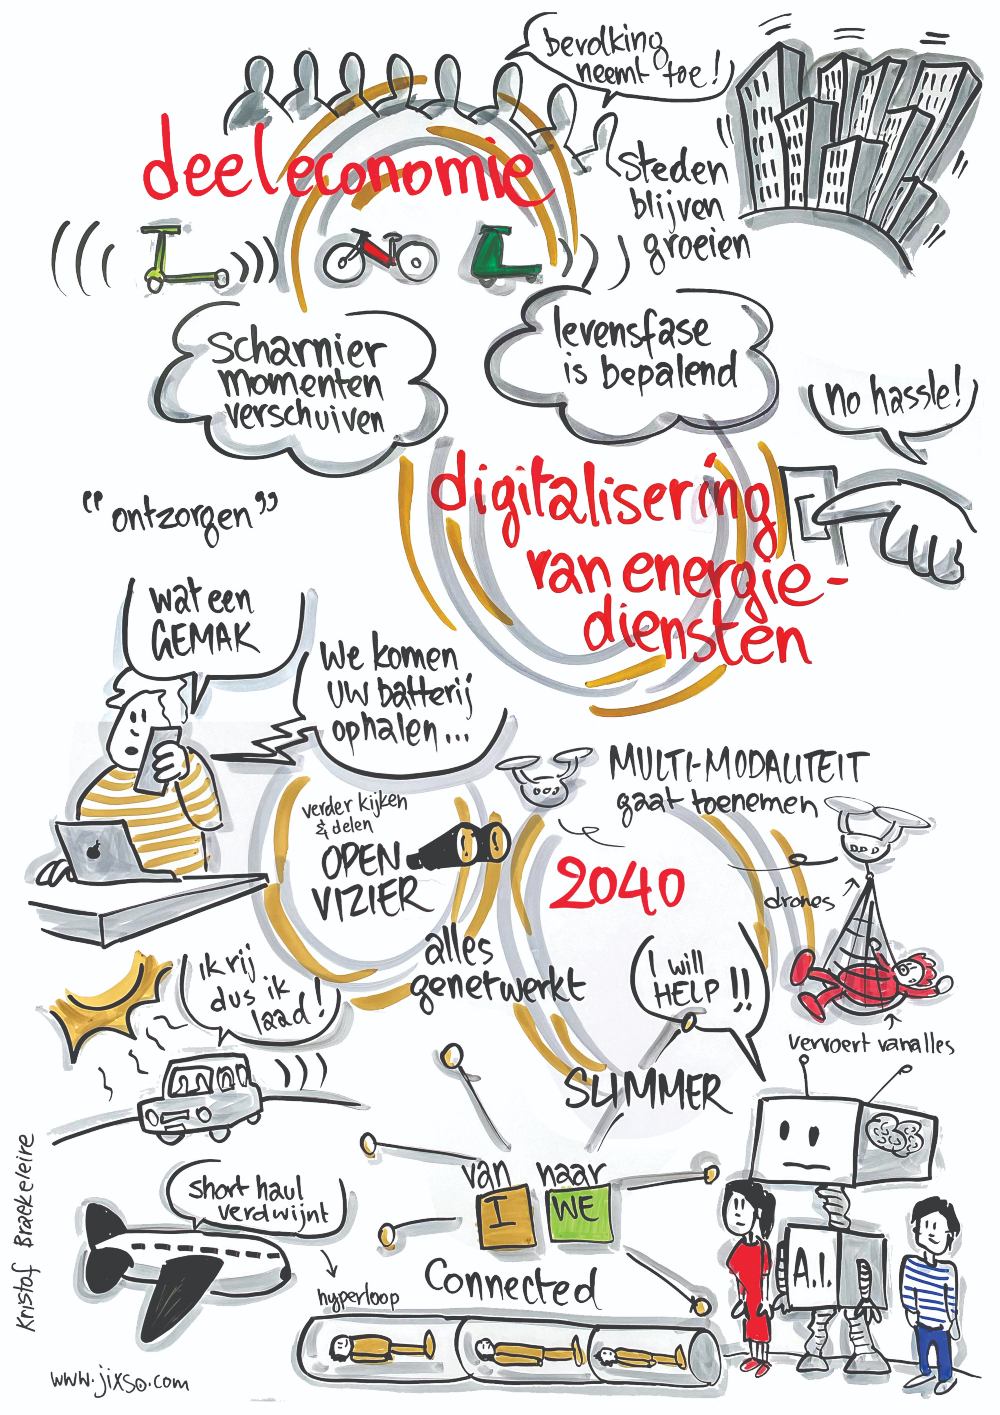 bevolking
neemt toe!
deeleconomie
steden
blijven
groeien
scharnier
momenten
verschuiven
levensfase
is bepalend
no hassle!
"ontzorgen"
digitalisering
van energie-
diensten
wat een
GEMAK
We komen
UW batterij
ophalen...
verder kijken
& delen
OPEN
VIZIER
MULTI-MODALITEIT
gaat toenemen
2040
drones
alles
genetwerkt
ik rij
dus ik
laad!
I will
HELP!!
vervoert van alles
SLIMMER
van naar
I WE
Connected
short haul
verdwijnt
hyperloop
A.I.
Kristof Braekeleire
www.jixso.com